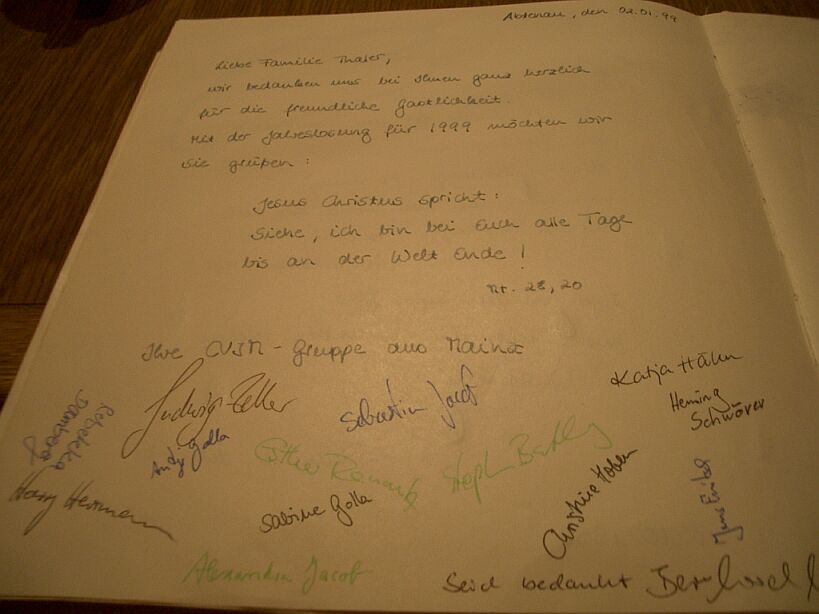 Abtenau, den 02.01.99
Liebe Familie Thaler,
wir bedanken uns bei Ihnen ganz herzlich
für die freundliche Gastlichkeit.
Mit der Jahreslosung für 1999 möchten wir
Sie grüßen:
Jesus Christus spricht:
Siehe, ich bin bei Euch alle Tage
bis an der Welt Ende!
Mt. 28, 20
Ihre CVJM-Gruppe aus Mainz
Katja Hahn
Ludwig Zeller
Sebastian Jacob
Henning
Schwörer
Rebekka
Golla
Esther
Harry Herrmann
Sabine Golla
Christine
Jens
Alexandra Jacob
Seid bedankt